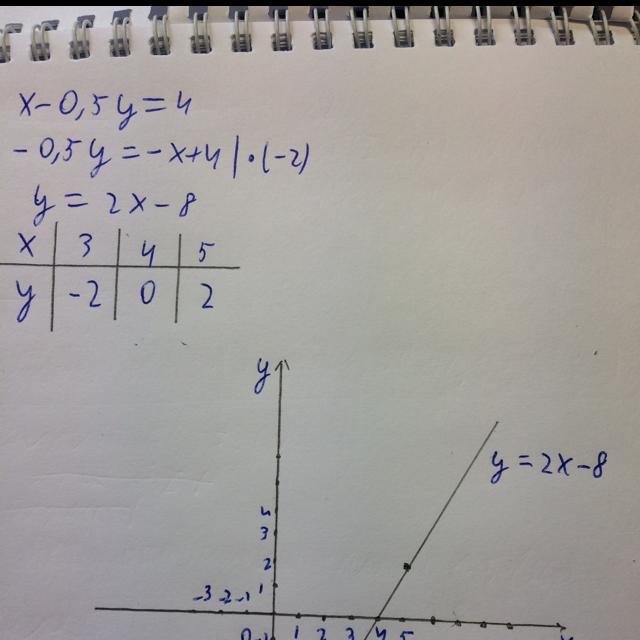 x-0,5y=4
-0,5y=-x+4|·(-2)
y=2x-8
x 3 4 5
y -2 0 2
y
y=2x-8
4
3
2
1
-3 -2 -1
0 1 2 3 4 5